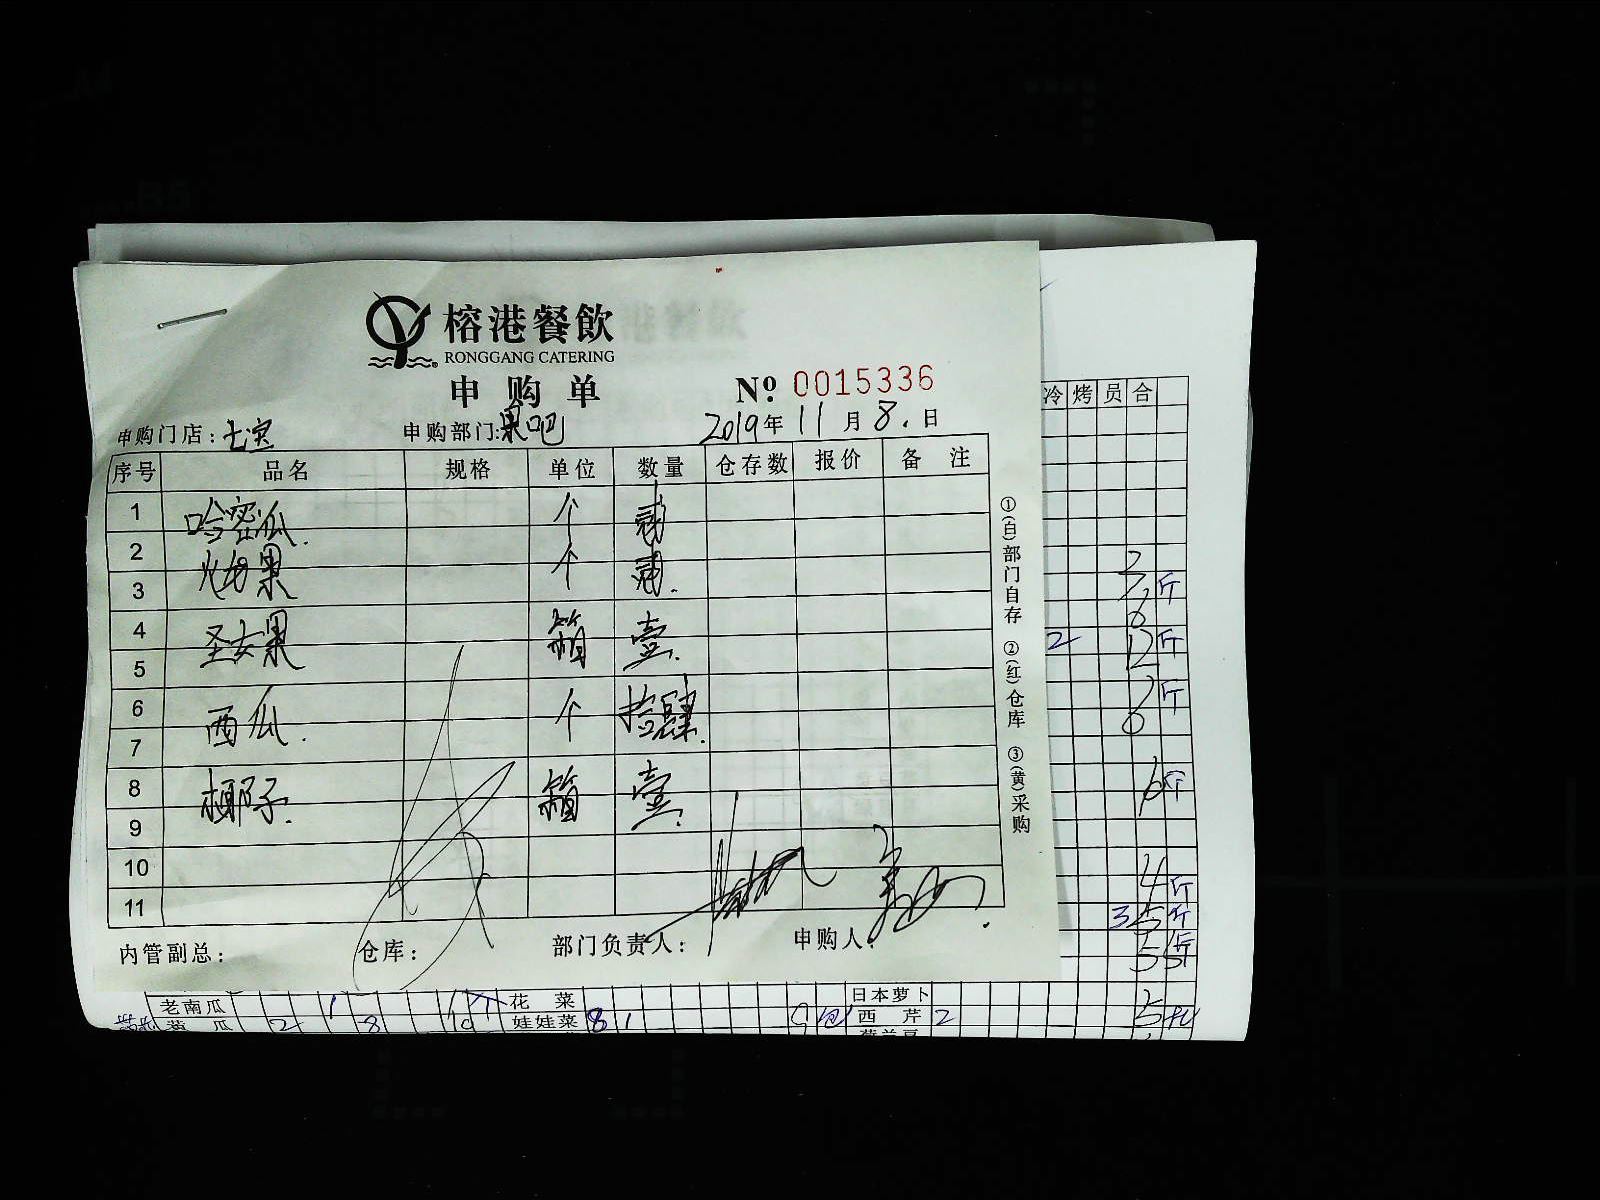 榕港餐飲
RONGGANG CATERING
申购单 № 0015336
申购门店:七宝 申购部门:果吧 2019年11月8.日
序号 品名 规格 单位 数量 仓存数 报价 备注
1 哈密瓜. 个 贰
2
3 火龙果 个 贰.
4 圣女果 箱 壹.
5
6 西瓜. 个 拾肆.
7
8 椰子. 箱 壹.
9
10
11
内管副总: 仓库: 部门负责人: 申购人:
①(白)部门自存 ②(红)仓库 ③(黄)采购
冷 烤 员 合
斤
2 12 斤
斤
6 斤
4 斤
35 斤
55 斤
老南瓜 1 10 个 花菜 日本萝卜
黄瓜 2 8 10 娃娃菜 8 1 9 西芹 2 5